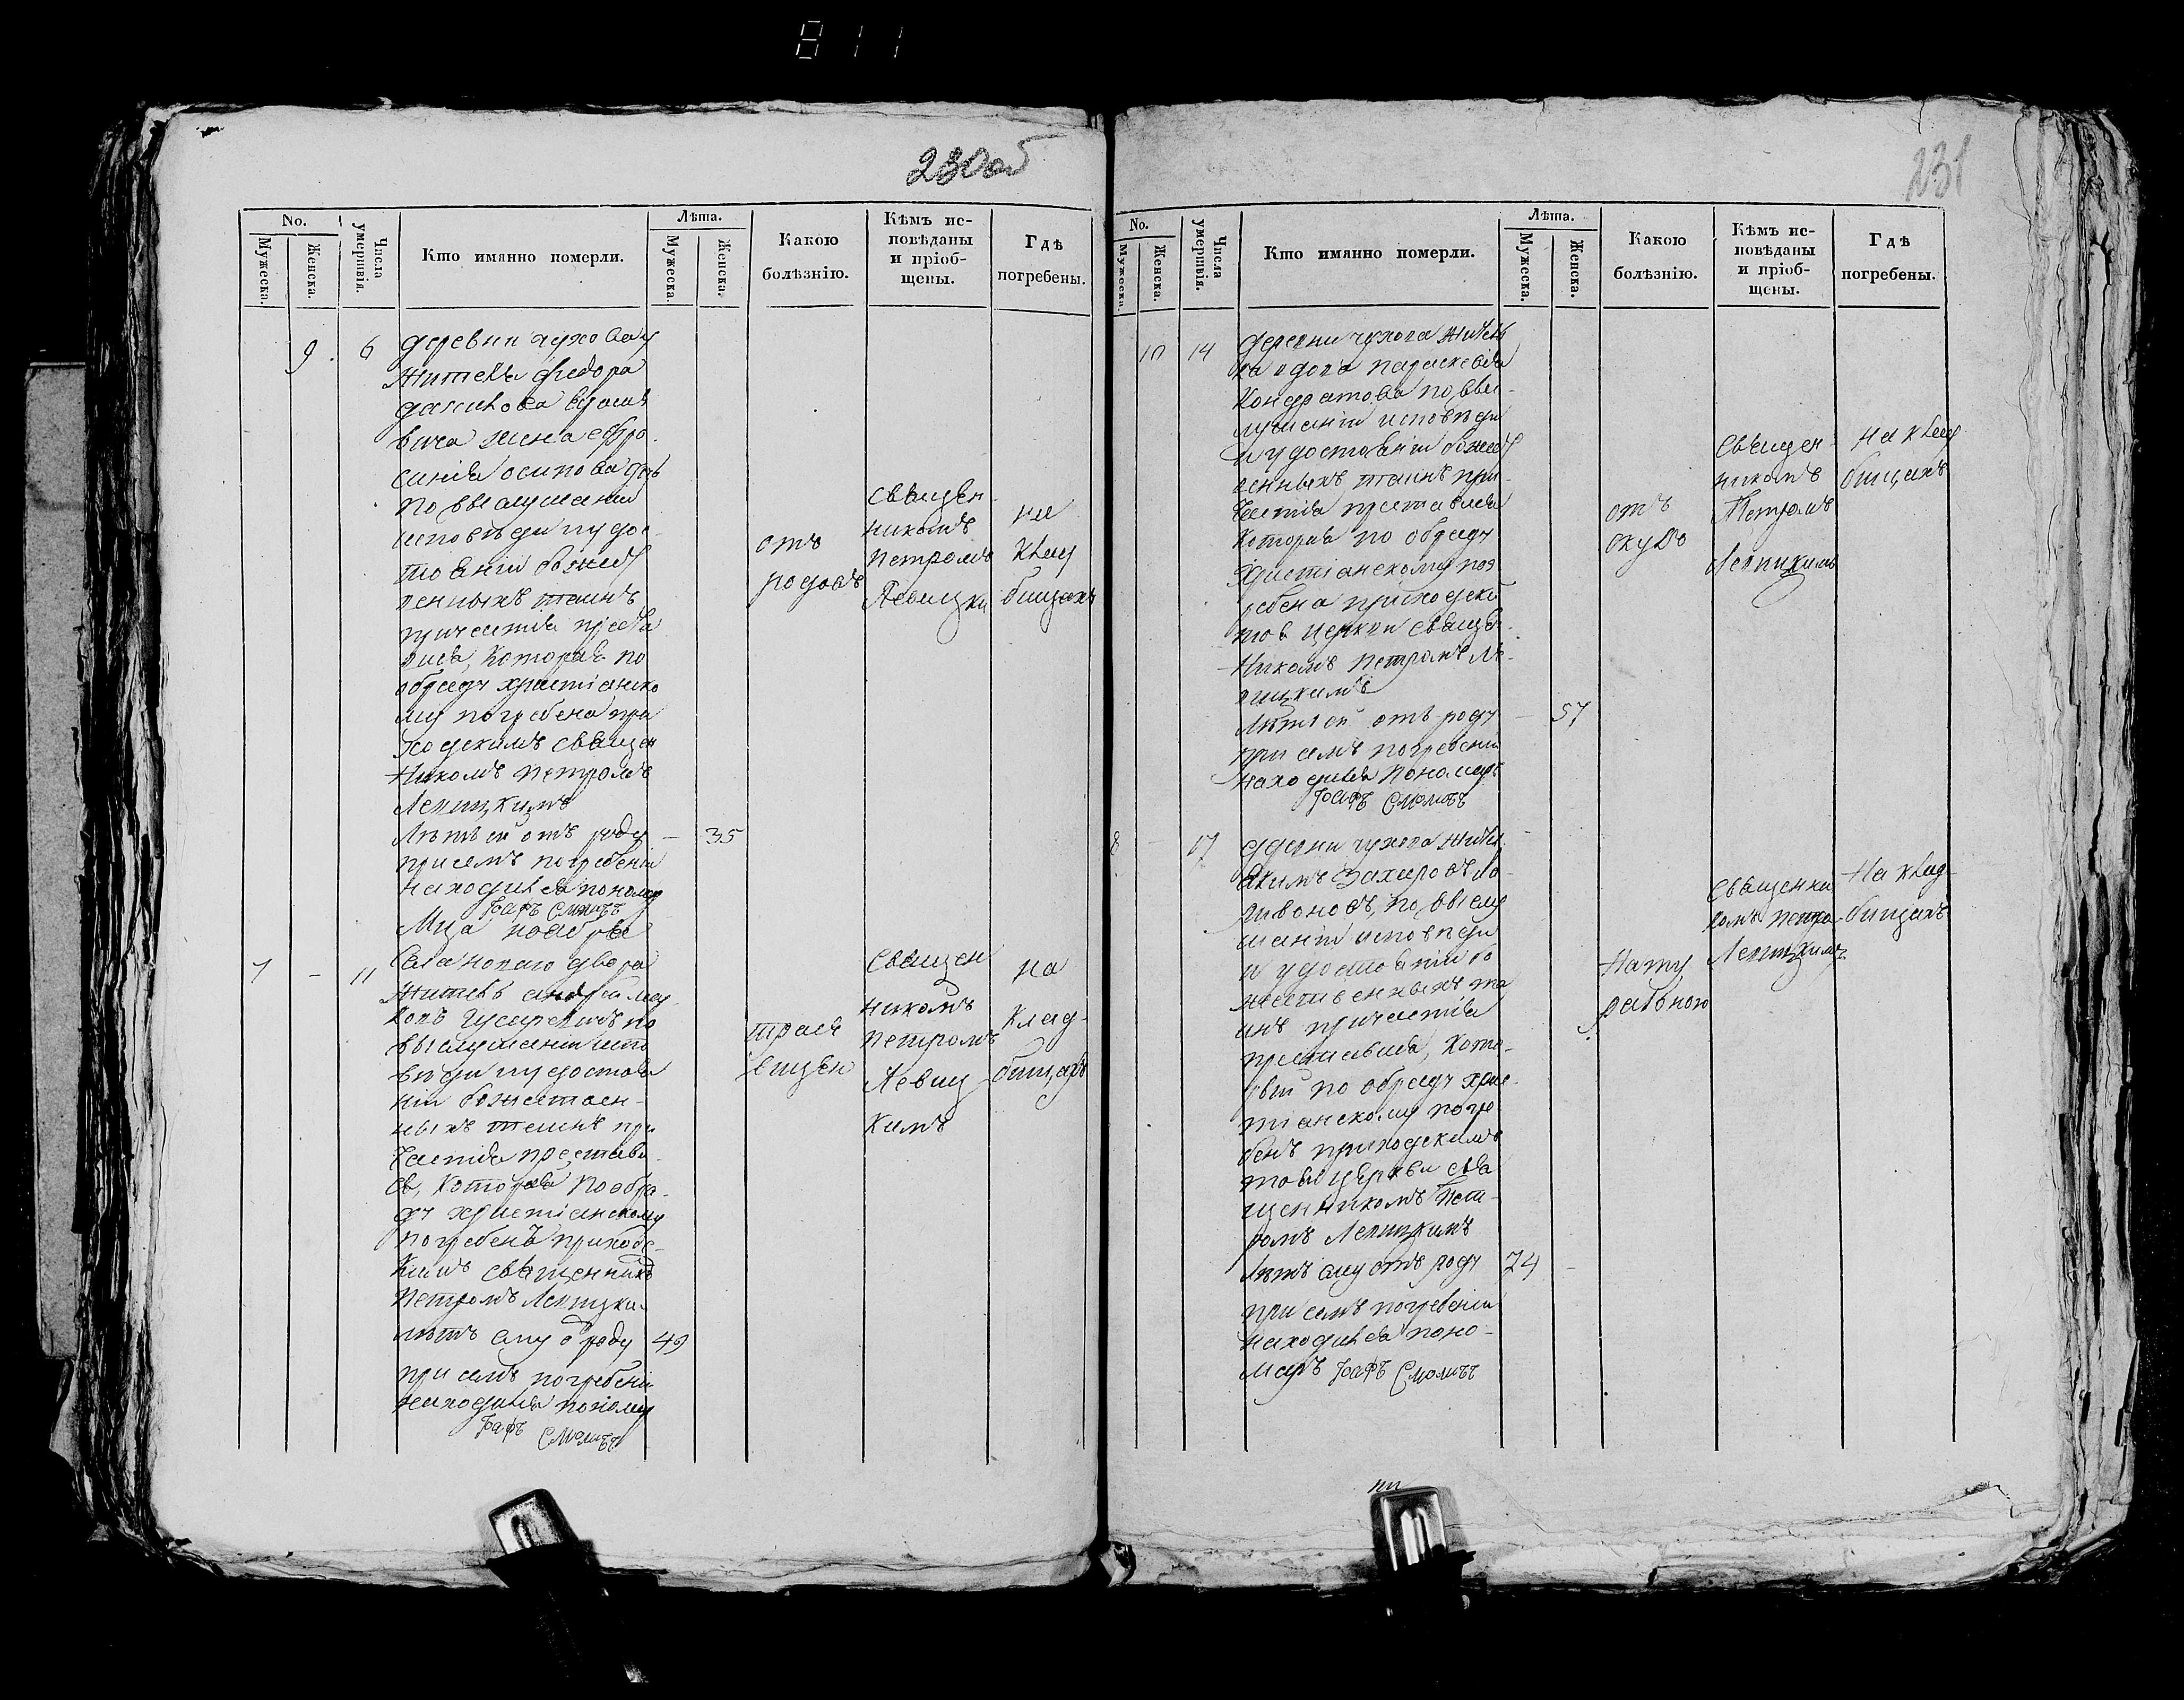 811
230об
No.
Мужеска.
Женска.
Числа умершвія.
Кто имянно померли.
Лѣта.
Мужеска.
Женска.
Какою болѣзнію.
Кѣмъ ис-
повѣданы
и пріоб-
щены.
Гдѣ
погребены.
9 6 деревни чухова
житель федора
жена ефро
синія осипова
по выслушаніи
исповѣди и удос
тоеніи божест
венныхъ таинъ
причастія преста
вися, которая по
обряду христіанско
му погребена при
ходскимъ священ
никомъ петромъ
Левицкимъ
Лѣтъ ей отъ роду — 35
при семъ погребеніи
находился пономар
Іоафъ
отъ
родовъ
священ
никомъ
петромъ
Левицки
на
клад
бищахъ
Мца ноября
7 - 11 Села новаго двора
житель андрей
по
выслушаніи испо
вѣди и удостое
ніи божествен
ныхъ таинъ при
частія престави
ся, которая по обря
ду христіанскому
погребенъ приход
кимъ священникъ
петромъ Левицки
лѣтъ ему о роду 49
при семъ погребени
находился пономар
Іоафъ
священ
никомъ
петромъ
Левиц
кимъ
на
клад
бищахъ
231
No.
Мужеска.
Женска.
Числа умершвія.
Кто имянно померли.
Лѣта.
Мужеска.
Женска.
Какою болѣзнію.
Кѣмъ ис-
повѣданы
и пріоб-
щены.
Гдѣ
погребены.
10 14 деревни чухова житель
ка вдова параскевія
Кондратова по выс
лушаніи исповѣди
и удостоеніи божест
венныхъ таинъ при
частія преставися
которая по обряду
христіанскому пог
ребена приходско
тоя церкви священ
никомъ петромъ Ле
вицкимъ
Лѣтъ ей отъ роду — 57
при семъ погребении
находился пономаръ
Іоафъ
отъ
Священ
никомъ
Петромъ
Левицкимъ
на клад
бищахъ
8 - 17 деревни чухова жител
Акимъ Захаровъ
по выслу
шаніи исповѣди
и удостоеніи бо
жественныхъ та
инъ причастія
преставися, кото
рый по обряду хрис
тіанскому погре
бенъ приходскимъ
тоя церкви свя
щенникомъ Пет
ромъ Левицкимъ
лѣтъ ему отъ роду 74 -
при семъ погребеніи
находился поно
марь Іоафъ
Нату
ральною
Священни
комъ петро
Левицкимъ
На клад
бищахъ